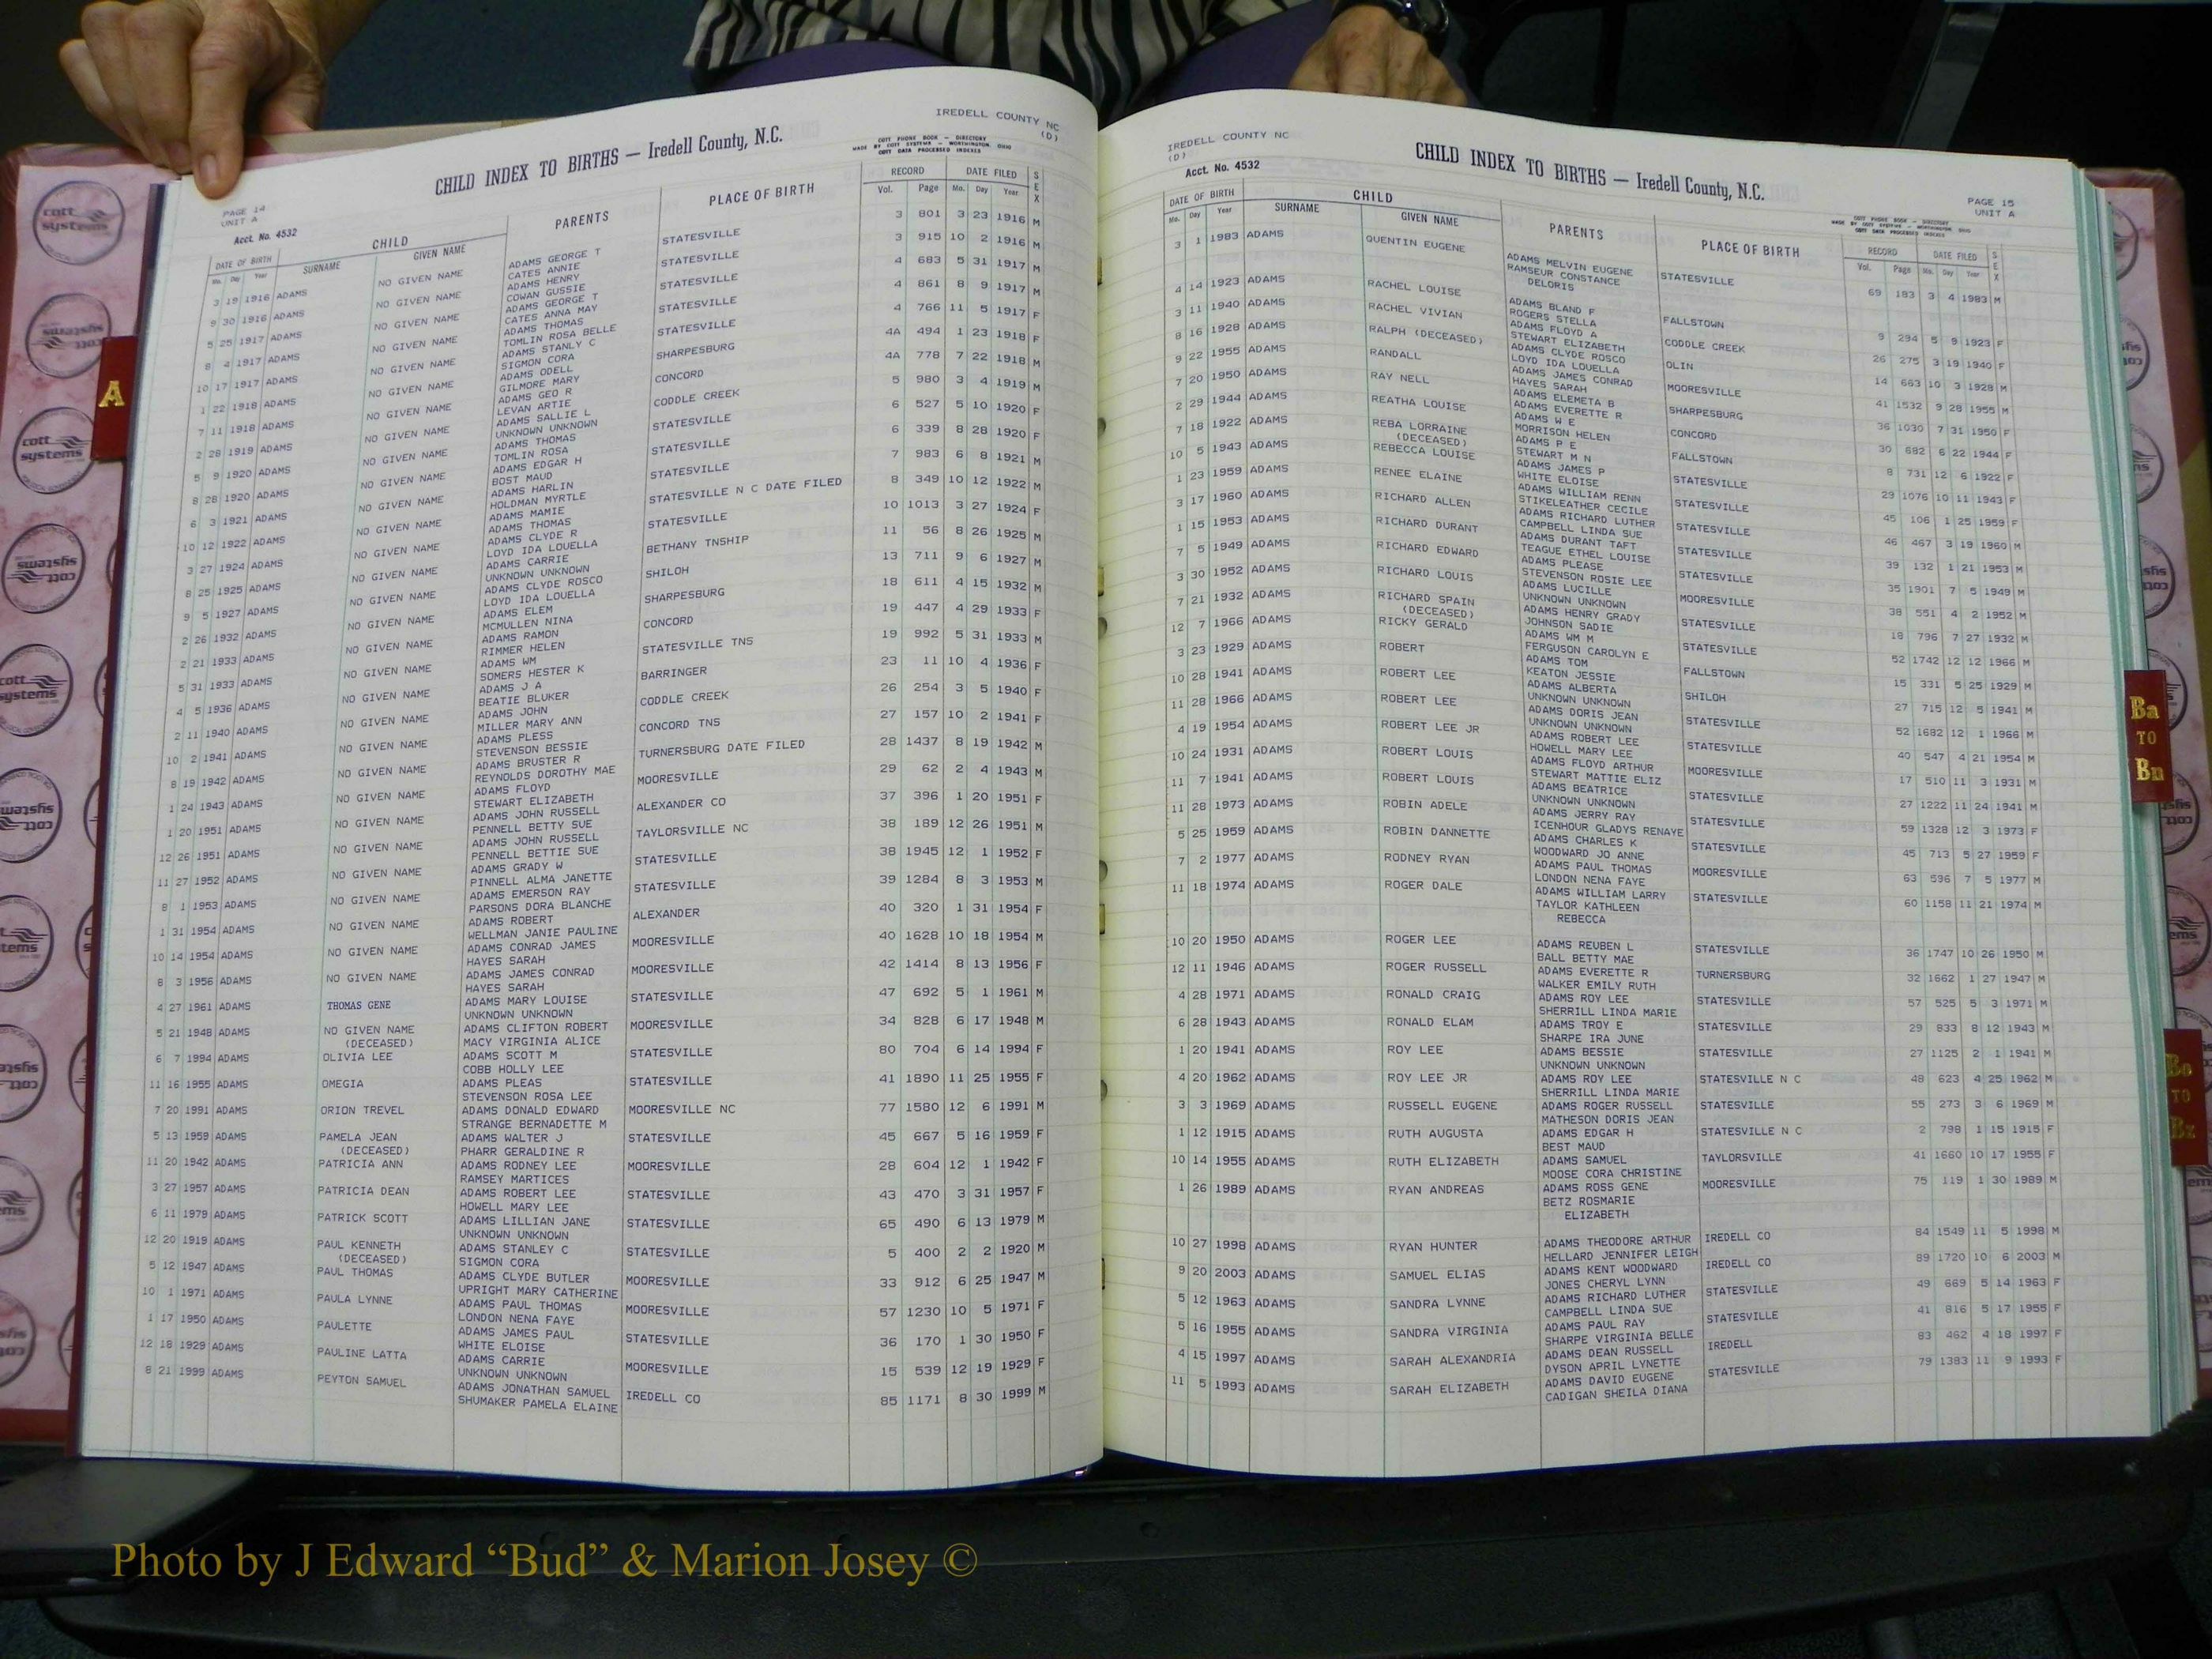 IREDELL COUNTY NC
(D)
CHILD INDEX TO BIRTHS — Iredell County, N.C.
COTT PHONE BOOK — DIRECTORY
MADE BY COTT SYSTEMS — WORTHINGTON, OHIO
COTT DATA PROCESSED INDEXES
PAGE 14
UNIT A
Acct. No. 4532
DATE OF BIRTH CHILD PARENTS PLACE OF BIRTH RECORD DATE FILED SEX
Mo. Day Year SURNAME GIVEN NAME Vol. Page Mo. Day Year
3 19 1916 ADAMS NO GIVEN NAME ADAMS GEORGE T STATESVILLE 3 801 3 23 1916 M
CATES ANNIE
9 30 1916 ADAMS NO GIVEN NAME ADAMS HENRY STATESVILLE 3 915 10 2 1916 M
COWAN GUSSIE
5 25 1917 ADAMS NO GIVEN NAME ADAMS GEORGE T STATESVILLE 4 683 5 31 1917 M
CATES ANNA MAY
8 4 1917 ADAMS NO GIVEN NAME ADAMS THOMAS STATESVILLE 4 861 8 9 1917 M
TOMLIN ROSA BELLE
10 17 1917 ADAMS NO GIVEN NAME ADAMS STANLY C STATESVILLE 4 766 11 5 1917 F
SIGMON CORA
1 22 1918 ADAMS NO GIVEN NAME ADAMS ODELL SHARPESBURG 4A 494 1 23 1918 F
GILMORE MARY
7 11 1918 ADAMS NO GIVEN NAME ADAMS GEO R CONCORD 4A 778 7 22 1918 M
LEVAN ARTIE
2 28 1919 ADAMS NO GIVEN NAME ADAMS SALLIE L CODDLE CREEK 5 980 3 4 1919 M
UNKNOWN UNKNOWN
5 9 1920 ADAMS NO GIVEN NAME ADAMS THOMAS STATESVILLE 6 527 5 10 1920 F
TOMLIN ROSA
8 28 1920 ADAMS NO GIVEN NAME ADAMS EDGAR H STATESVILLE 6 339 8 28 1920 F
BOST MAUD
6 3 1921 ADAMS NO GIVEN NAME ADAMS HARLIN STATESVILLE 7 983 6 8 1921 M
HOLDMAN MYRTLE
10 12 1922 ADAMS NO GIVEN NAME ADAMS MAMIE STATESVILLE N C DATE FILED 8 349 10 12 1922 M
ADAMS THOMAS
3 27 1924 ADAMS NO GIVEN NAME ADAMS CLYDE R STATESVILLE 10 1013 3 27 1924 F
LOYD IDA LOUELLA
8 25 1925 ADAMS NO GIVEN NAME ADAMS CARRIE BETHANY TNSHIP 11 56 8 26 1925 M
UNKNOWN UNKNOWN
9 5 1927 ADAMS NO GIVEN NAME ADAMS CLYDE ROSCO SHILOH 13 711 9 6 1927 M
LOYD IDA LOUELLA
2 26 1932 ADAMS NO GIVEN NAME ADAMS ELEM SHARPESBURG 18 611 4 15 1932 M
MCMULLEN NINA
2 21 1933 ADAMS NO GIVEN NAME ADAMS RAMON CONCORD 19 447 4 29 1933 F
RIMMER HELEN
5 31 1933 ADAMS NO GIVEN NAME ADAMS WM STATESVILLE TNS 19 992 5 31 1933 M
SOMERS HESTER K
4 5 1936 ADAMS NO GIVEN NAME ADAMS J A BARRINGER 23 11 10 4 1936 F
BEATIE BLUKER
2 11 1940 ADAMS NO GIVEN NAME ADAMS JOHN CODDLE CREEK 26 254 3 5 1940 F
MILLER MARY ANN
10 2 1941 ADAMS NO GIVEN NAME ADAMS PLESS CONCORD TNS 27 157 10 2 1941 F
STEVENSON BESSIE
8 19 1942 ADAMS NO GIVEN NAME ADAMS BRUSTER R TURNERSBURG DATE FILED 28 1437 8 19 1942 M
REYNOLDS DOROTHY MAE
1 24 1943 ADAMS NO GIVEN NAME ADAMS FLOYD MOORESVILLE 29 62 2 4 1943 M
STEWART ELIZABETH
1 20 1951 ADAMS NO GIVEN NAME ADAMS JOHN RUSSELL ALEXANDER CO 37 396 1 20 1951 F
PENNELL BETTY SUE
12 26 1951 ADAMS NO GIVEN NAME ADAMS JOHN RUSSELL TAYLORSVILLE NC 38 189 12 26 1951 M
PENNELL BETTIE SUE
11 27 1952 ADAMS NO GIVEN NAME ADAMS GRADY W STATESVILLE 38 1945 12 1 1952 F
PINNELL ALMA JANETTE
8 1 1953 ADAMS NO GIVEN NAME ADAMS EMERSON RAY STATESVILLE 39 1284 8 3 1953 M
PARSONS DORA BLANCHE
1 31 1954 ADAMS NO GIVEN NAME ADAMS ROBERT ALEXANDER 40 320 1 31 1954 F
WELLMAN JANIE PAULINE
10 14 1954 ADAMS NO GIVEN NAME ADAMS CONRAD JAMES MOORESVILLE 40 1628 10 18 1954 M
HAYES SARAH
8 3 1956 ADAMS NO GIVEN NAME ADAMS JAMES CONRAD MOORESVILLE 42 1414 8 13 1956 F
HAYES SARAH
4 27 1961 ADAMS THOMAS GENE ADAMS MARY LOUISE STATESVILLE 47 692 5 1 1961 M
UNKNOWN UNKNOWN
5 21 1948 ADAMS NO GIVEN NAME ADAMS CLIFTON ROBERT MOORESVILLE 34 828 6 17 1948 M
(DECEASED) MACY VIRGINIA ALICE
6 7 1994 ADAMS OLIVIA LEE ADAMS SCOTT M STATESVILLE 80 704 6 14 1994 F
COBB HOLLY LEE
11 16 1955 ADAMS OMEGIA ADAMS PLEAS STATESVILLE 41 1890 11 25 1955 F
STEVENSON ROSA LEE
7 20 1991 ADAMS ORION TREVEL ADAMS DONALD EDWARD MOORESVILLE NC 77 1580 12 6 1991 M
STRANGE BERNADETTE M
5 13 1959 ADAMS PAMELA JEAN ADAMS WALTER J STATESVILLE 45 667 5 16 1959 F
(DECEASED) PHARR GERALDINE R
11 20 1942 ADAMS PATRICIA ANN ADAMS RODNEY LEE MOORESVILLE 28 604 12 1 1942 F
RAMSEY MARTICES
3 27 1957 ADAMS PATRICIA DEAN ADAMS ROBERT LEE STATESVILLE 43 470 3 31 1957 F
HOWELL MARY LEE
6 11 1979 ADAMS PATRICK SCOTT ADAMS LILLIAN JANE STATESVILLE 65 490 6 13 1979 M
UNKNOWN UNKNOWN
12 20 1919 ADAMS PAUL KENNETH ADAMS STANLEY C STATESVILLE 5 400 2 2 1920 M
(DECEASED) SIGMON CORA
5 12 1947 ADAMS PAUL THOMAS ADAMS CLYDE BUTLER MOORESVILLE 33 912 6 25 1947 M
UPRIGHT MARY CATHERINE
10 1 1971 ADAMS PAULA LYNNE ADAMS PAUL THOMAS MOORESVILLE 57 1230 10 5 1971 F
LONDON NENA FAYE
1 17 1950 ADAMS PAULETTE ADAMS JAMES PAUL STATESVILLE 36 170 1 30 1950 F
WHITE ELOISE
12 18 1929 ADAMS PAULINE LATTA ADAMS CARRIE MOORESVILLE 15 539 12 19 1929 F
UNKNOWN UNKNOWN
8 21 1999 ADAMS PEYTON SAMUEL ADAMS JONATHAN SAMUEL IREDELL CO 85 1171 8 30 1999 M
SHUMAKER PAMELA ELAINE
IREDELL COUNTY NC
(D)
Acct. No. 4532
CHILD INDEX TO BIRTHS — Iredell County, N.C.
PAGE 15
UNIT A
COTT PHONE BOOK — DIRECTORY
MADE BY COTT SYSTEMS — WORTHINGTON, OHIO
COTT DATA PROCESSED INDEXES
DATE OF BIRTH CHILD PARENTS PLACE OF BIRTH RECORD DATE FILED SEX
Mo. Day Year SURNAME GIVEN NAME Vol. Page Mo. Day Year
3 1 1983 ADAMS QUENTIN EUGENE ADAMS MELVIN EUGENE STATESVILLE 69 183 3 4 1983 M
RAMSEUR CONSTANCE
DELORIS
4 14 1923 ADAMS RACHEL LOUISE ADAMS BLAND F FALLSTOWN 9 294 5 9 1923 F
ROGERS STELLA
3 11 1940 ADAMS RACHEL VIVIAN ADAMS FLOYD A CODDLE CREEK 26 275 3 19 1940 F
STEWART ELIZABETH
8 16 1928 ADAMS RALPH (DECEASED) ADAMS CLYDE ROSCO OLIN 14 663 10 3 1928 M
LOYD IDA LOUELLA
9 22 1955 ADAMS RANDALL ADAMS JAMES CONRAD MOORESVILLE 41 1532 9 28 1955 M
HAYES SARAH
7 20 1950 ADAMS RAY NELL ADAMS ELEMETA B SHARPESBURG 36 1030 7 31 1950 F
ADAMS EVERETTE R
2 29 1944 ADAMS REATHA LOUISE ADAMS W E CONCORD 30 682 6 22 1944 F
MORRISON HELEN
7 18 1922 ADAMS REBA LORRAINE ADAMS P E FALLSTOWN 8 731 12 6 1922 F
(DECEASED) STEWART M N
10 5 1943 ADAMS REBECCA LOUISE ADAMS JAMES P STATESVILLE 29 1076 10 11 1943 F
WHITE ELOISE
1 23 1959 ADAMS RENEE ELAINE ADAMS WILLIAM RENN STATESVILLE 45 106 1 25 1959 F
STIKELEATHER CECILE
3 17 1960 ADAMS RICHARD ALLEN ADAMS RICHARD LUTHER STATESVILLE 46 467 3 19 1960 M
CAMPBELL LINDA SUE
1 15 1953 ADAMS RICHARD DURANT ADAMS DURANT TAFT STATESVILLE 39 132 1 21 1953 M
TEAGUE ETHEL LOUISE
7 5 1949 ADAMS RICHARD EDWARD ADAMS PLEASE STATESVILLE 35 1901 7 5 1949 M
STEVENSON ROSIE LEE
3 30 1952 ADAMS RICHARD LOUIS ADAMS LUCILLE MOORESVILLE 38 551 4 2 1952 M
UNKNOWN UNKNOWN
7 21 1932 ADAMS RICHARD SPAIN ADAMS HENRY GRADY STATESVILLE 18 796 7 27 1932 M
(DECEASED) JOHNSON SADIE
12 7 1966 ADAMS RICKY GERALD ADAMS WM M STATESVILLE 52 1742 12 12 1966 M
FERGUSON CAROLYN E
3 23 1929 ADAMS ROBERT ADAMS TOM FALLSTOWN 15 331 5 25 1929 M
KEATON JESSIE
10 28 1941 ADAMS ROBERT LEE ADAMS ALBERTA SHILOH 27 715 12 5 1941 M
UNKNOWN UNKNOWN
11 28 1966 ADAMS ROBERT LEE ADAMS DORIS JEAN STATESVILLE 52 1682 12 1 1966 M
UNKNOWN UNKNOWN
4 19 1954 ADAMS ROBERT LEE JR ADAMS ROBERT LEE STATESVILLE 40 547 4 21 1954 M
HOWELL MARY LEE
10 24 1931 ADAMS ROBERT LOUIS ADAMS FLOYD ARTHUR MOORESVILLE 17 510 11 3 1931 M
STEWART MATTIE ELIZ
11 7 1941 ADAMS ROBERT LOUIS ADAMS BEATRICE STATESVILLE 27 1222 11 24 1941 M
UNKNOWN UNKNOWN
11 28 1973 ADAMS ROBIN ADELE ADAMS JERRY RAY STATESVILLE 59 1328 12 3 1973 F
ICENHOUR GLADYS RENAYE
5 25 1959 ADAMS ROBIN DANNETTE ADAMS CHARLES K STATESVILLE 45 713 5 27 1959 F
WOODWARD JO ANNE
7 2 1977 ADAMS RODNEY RYAN ADAMS PAUL THOMAS MOORESVILLE 63 596 7 5 1977 M
LONDON NENA FAYE
11 18 1974 ADAMS ROGER DALE ADAMS WILLIAM LARRY STATESVILLE 60 1158 11 21 1974 M
TAYLOR KATHLEEN
REBECCA
10 20 1950 ADAMS ROGER LEE ADAMS REUBEN L STATESVILLE 36 1747 10 26 1950 M
BALL BETTY MAE
12 11 1946 ADAMS ROGER RUSSELL ADAMS EVERETTE R TURNERSBURG 32 1662 1 27 1947 M
WALKER EMILY RUTH
4 28 1971 ADAMS RONALD CRAIG ADAMS ROY LEE STATESVILLE 57 525 5 3 1971 M
SHERRILL LINDA MARIE
6 28 1943 ADAMS RONALD ELAM ADAMS TROY E STATESVILLE 29 833 8 12 1943 M
SHARPE IRA JUNE
1 20 1941 ADAMS ROY LEE ADAMS BESSIE STATESVILLE 27 1125 2 1 1941 M
UNKNOWN UNKNOWN
4 20 1962 ADAMS ROY LEE JR ADAMS ROY LEE STATESVILLE N C 48 623 4 25 1962 M
SHERRILL LINDA MARIE
3 3 1969 ADAMS RUSSELL EUGENE ADAMS ROGER RUSSELL STATESVILLE 55 273 3 6 1969 M
MATHESON DORIS JEAN
1 12 1915 ADAMS RUTH AUGUSTA ADAMS EDGAR H STATESVILLE N C 2 798 1 15 1915 F
BEST MAUD
10 14 1955 ADAMS RUTH ELIZABETH ADAMS SAMUEL TAYLORSVILLE 41 1660 10 17 1955 F
MOOSE CORA CHRISTINE
1 26 1989 ADAMS RYAN ANDREAS ADAMS ROSS GENE MOORESVILLE 75 119 1 30 1989 M
BETZ ROSMARIE
ELIZABETH
10 27 1998 ADAMS RYAN HUNTER ADAMS THEODORE ARTHUR IREDELL CO 84 1549 11 5 1998 M
HELLARD JENNIFER LEIGH
9 20 2003 ADAMS SAMUEL ELIAS ADAMS KENT WOODWARD IREDELL CO 89 1720 10 6 2003 M
JONES CHERYL LYNN
5 12 1963 ADAMS SANDRA LYNNE ADAMS RICHARD LUTHER STATESVILLE 49 669 5 14 1963 F
CAMPBELL LINDA SUE
5 16 1955 ADAMS SANDRA VIRGINIA ADAMS PAUL RAY STATESVILLE 41 816 5 17 1955 F
SHARPE VIRGINIA BELLE
4 15 1997 ADAMS SARAH ALEXANDRIA ADAMS DEAN RUSSELL IREDELL 83 462 4 18 1997 F
DYSON APRIL LYNETTE
11 5 1993 ADAMS SARAH ELIZABETH ADAMS DAVID EUGENE STATESVILLE 79 1383 11 9 1993 F
CADIGAN SHEILA DIANA
A
Ba
TO
Bn
Bo
TO
Bz
cott
systems
Photo by J Edward “Bud” & Marion Josey ©